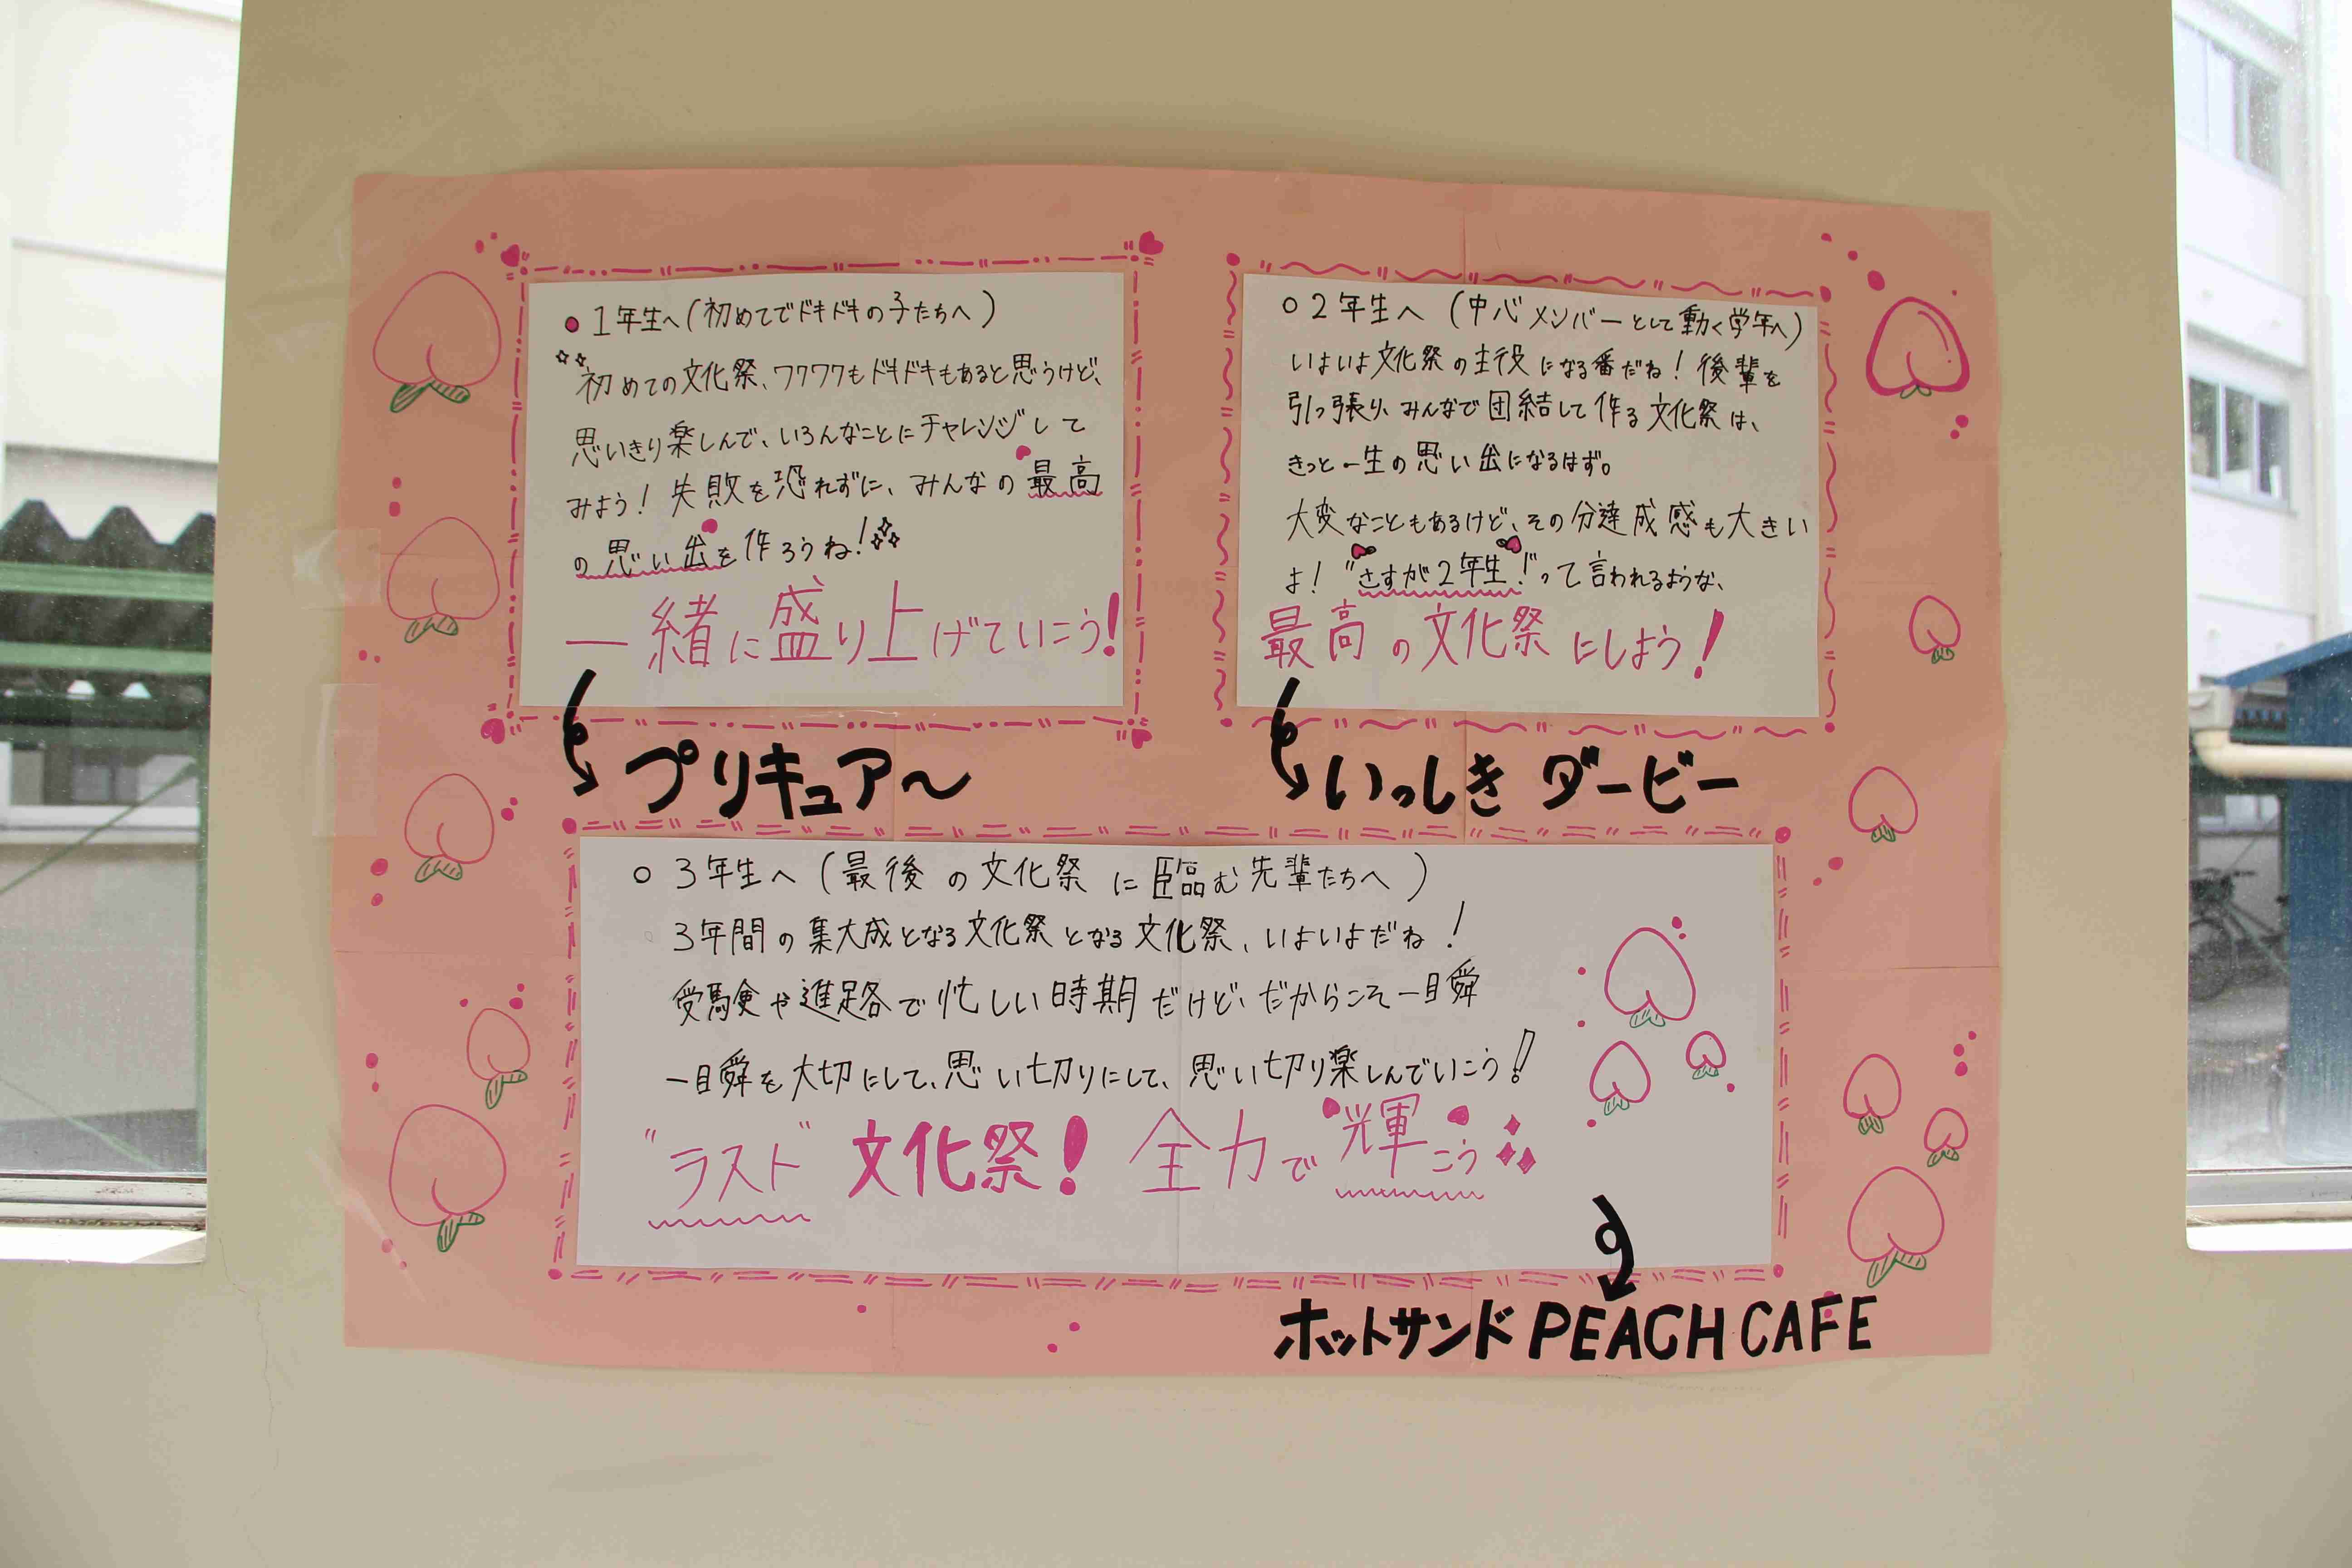 ●1年生へ(初めてでドキドキの子たちへ)
初めての文化祭、ワクワクもドキドキもあると思うけど、
思いきり楽しんで、いろんなことにチャレンジして
みよう!失敗を恐れずに、みんなの最高
の思い出を作ろうね!
一緒に盛り上げていこう!
プリキュア〜
○2年生へ (中心メンバーとして動く学年へ)
いよいよ文化祭の主役になる番だね!後輩を
引っ張り、みんなで団結して作る文化祭は、
きっと一生の思い出になるはず。
大変なこともあるけど、その分達成感も大きい
よ!"さすが2年生!"って言われるような、
最高の文化祭にしよう!
いっしき ダービー
○ 3年生へ (最後の文化祭に臨む先輩たちへ)
3年間の集大成となる文化祭となる文化祭、いよいよだね!
受験や進路で忙しい時期だけど、だからこそ一瞬
一瞬を大切にして、思い切りにして、思い切り楽しんでいこう!!
"ラスト" 文化祭! 全力で輝こう
ホットサンド PEACH CAFE